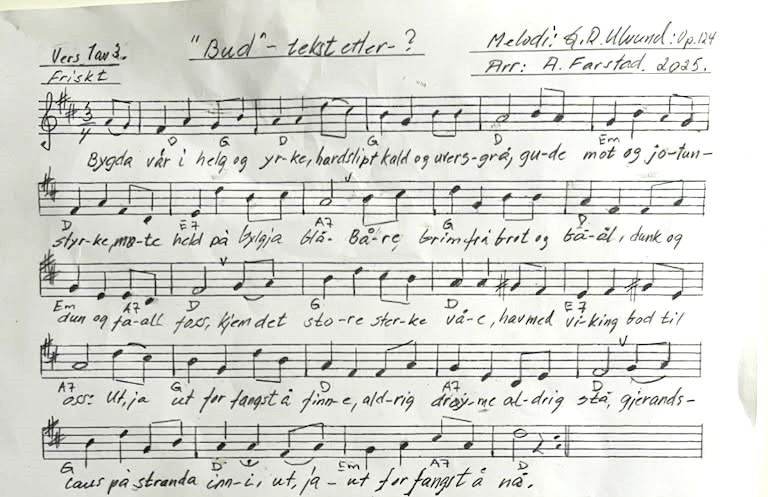 "Bud" - tekst etter - ?
Vers 1 av 3.
Friskt
Melodi: G.R. Ulvund: Op. 124
Arr: A. Farstad. 2025.
3/4
D G D G D Em
Bygda vår i helg og yr-ke, hardslipt kald og uvers-grå, gu-de mot og jo-tun-
D E7 A7 G D
styr-ke, mø-te held på bylgja blå. Bå-re, brim frå brot og bå-ål, dunk og
Em A7 D G D E7
dun og fa-all foss, kjem det sto-re ster-ke vå-e, hav med vi-king bod til
A7 G D A7 D
oss: Ut, ja ut for fangst å finn-e, ald-rig drøy-me al-drig stå, gjerands-
G D Em A7 D
laus på stranda inn-i, ut, ja - ut for fangst å nå.